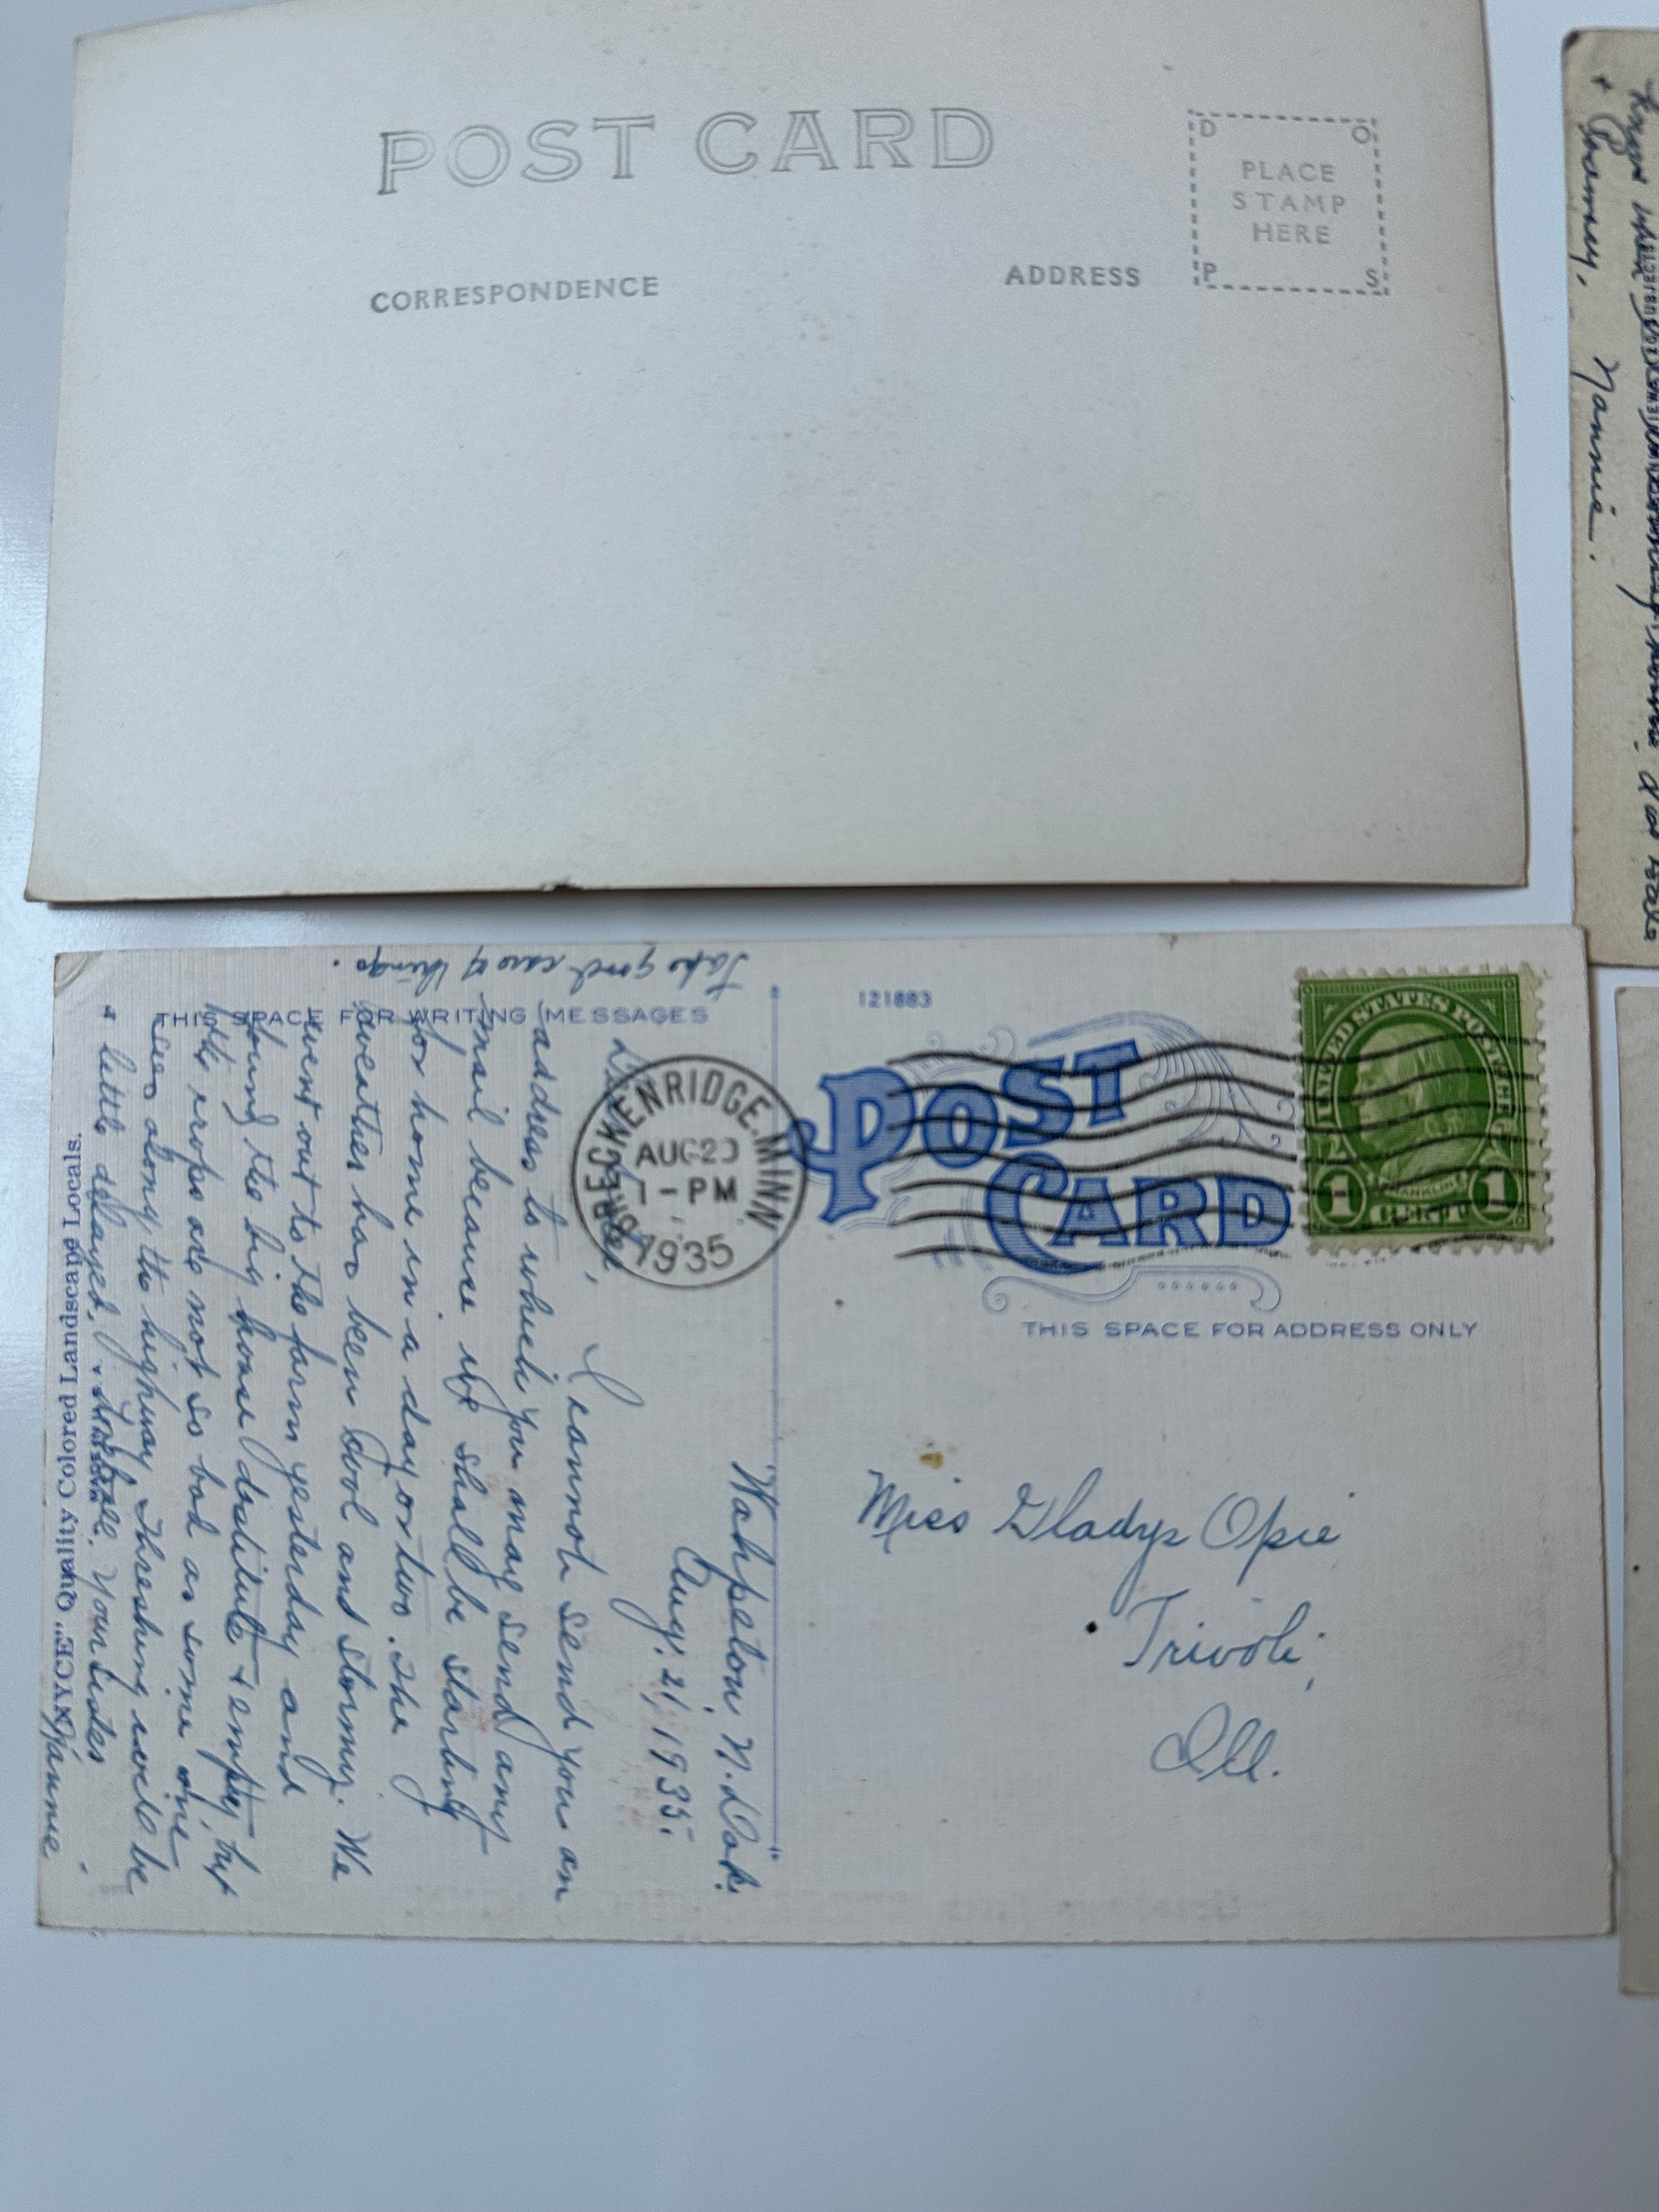 POST CARD
D O
PLACE
STAMP
HERE
P S
CORRESPONDENCE
ADDRESS
Nannie.
THIS SPACE FOR WRITING MESSAGES
Wahpeton, N. Dak.
Aug. 21, 1935.
I cannot send you an
address to which you may send any
mail because we shall be starting
for home in a day or two. The
weather has been cool and stormy. We
went out to the farm yesterday and
found the big house destitute + empty, but
the crops are not so bad as some one
sees along the highway. Threshing will be
a little delayed,
Nannie
Take good care of things.
"NYCE" Quality Colored Landscape Locals.
121883
POST
CARD
BRECKENRIDGE, MINN.
AUG 20
1-PM
1935
UNITED STATES POSTAGE
FRANKLIN
1 CENT 1
THIS SPACE FOR ADDRESS ONLY
Miss Gladys Opie
Trivoli,
Ill.